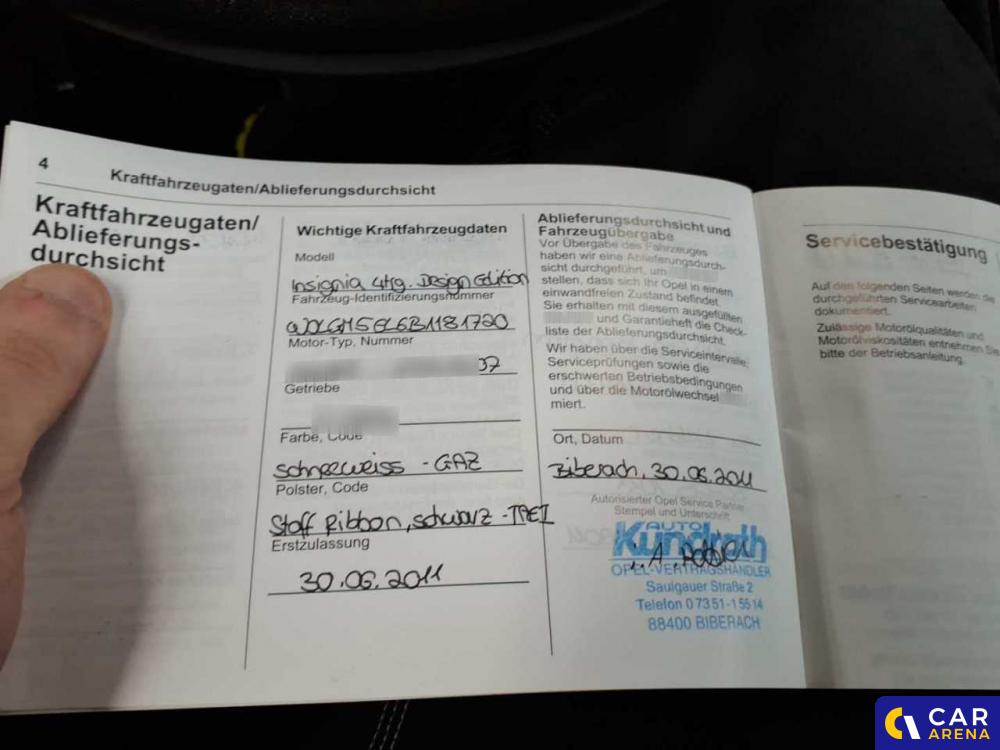 4
Kraftfahrzeugaten/Ablieferungsdurchsicht
Kraftfahrzeugaten/
Ablieferungs-
durchsicht
Wichtige Kraftfahrzeugdaten
Modell
Insignia 4tg. Design Edition
Fahrzeug-Identifizierungsnummer
W0LGM5EL6B1181720
Motor-Typ, Nummer
37
Getriebe
Farbe, Code
schneeweiss - GAZ
Polster, Code
Stoff Ribbon, schwarz -
Erstzulassung
30.06.2011
Ablieferungsdurchsicht und
Fahrzeugübergabe
Vor Übergabe des Fahrzeuges
haben wir eine Ablieferungsdurch-
sicht durchgeführt, um
stellen, dass sich Ihr Opel in einem
einwandfreien Zustand befindet.
Sie erhalten mit diesem ausgefüllten
und Garantieheft die Check-
liste der Ablieferungsdurchsicht.
Wir haben über die Serviceintervalle,
Serviceprüfungen sowie die
erschwerten Betriebsbedingungen
und über die Motorölwechsel
miert.
Ort, Datum
Biberach, 30.06.2011
Autorisierter Opel Service Partner
Stempel und Unterschrift
AUTO
Kundrath
i.A.
OPEL-VERTRAGSHÄNDLER
Saulgauer Straße 2
Telefon 0 73 51-1 55 14
88400 BIBERACH
Servicebestätigung
Auf den folgenden Seiten werden die
durchgeführten Servicearbeiten
dokumentiert.
Zulässige Motorölqualitäten und
Motorölviskositäten entnehmen Sie
bitte der Betriebsanleitung.
CAR
ARENA